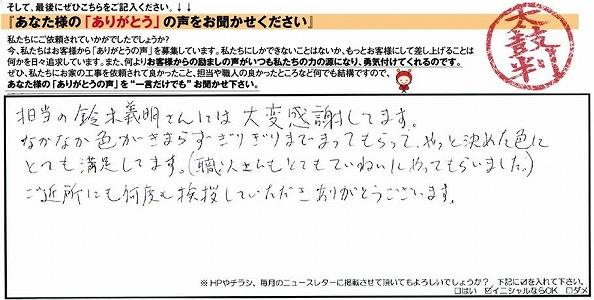 そして、最後にぜひこちらをご記入ください。↓↓
『あなた様の「ありがとう」の声をお聞かせください』
私たちにご依頼されていかがでしたでしょうか?
今、私たちはお客様から「ありがとうの声」を募集しています。私たちにしかできないことはないか、もっとお客様にして差し上げることは
何かを日々追求しています。また、何よりお客様からの励ましの声がいつも私たちの力の源になり、勇気付けてくれるのです。
ぜひ、私たちにお家の工事を依頼されて良かったこと、担当や職人の良かったところなど何でも結構ですので、
あなた様の「ありがとうの声」を“一言だけでも”お聞かせ下さい。
太鼓判
担当の鈴木義明さんには大変感謝してます。
なかなか色がきまらずぎりぎりまでまってもらって、やっと決めた色に
とても満足してます。(職人さんもとてもていねいにやってもらいました。)
ご近所にも何度も挨拶していただきありがとうございます。
※HPやチラシ、毎月のニュースレターに掲載させて頂いてもよろしいでしょうか? 下記に☑を入れて下さい。
□はい ☑イニシャルならOK □ダメ